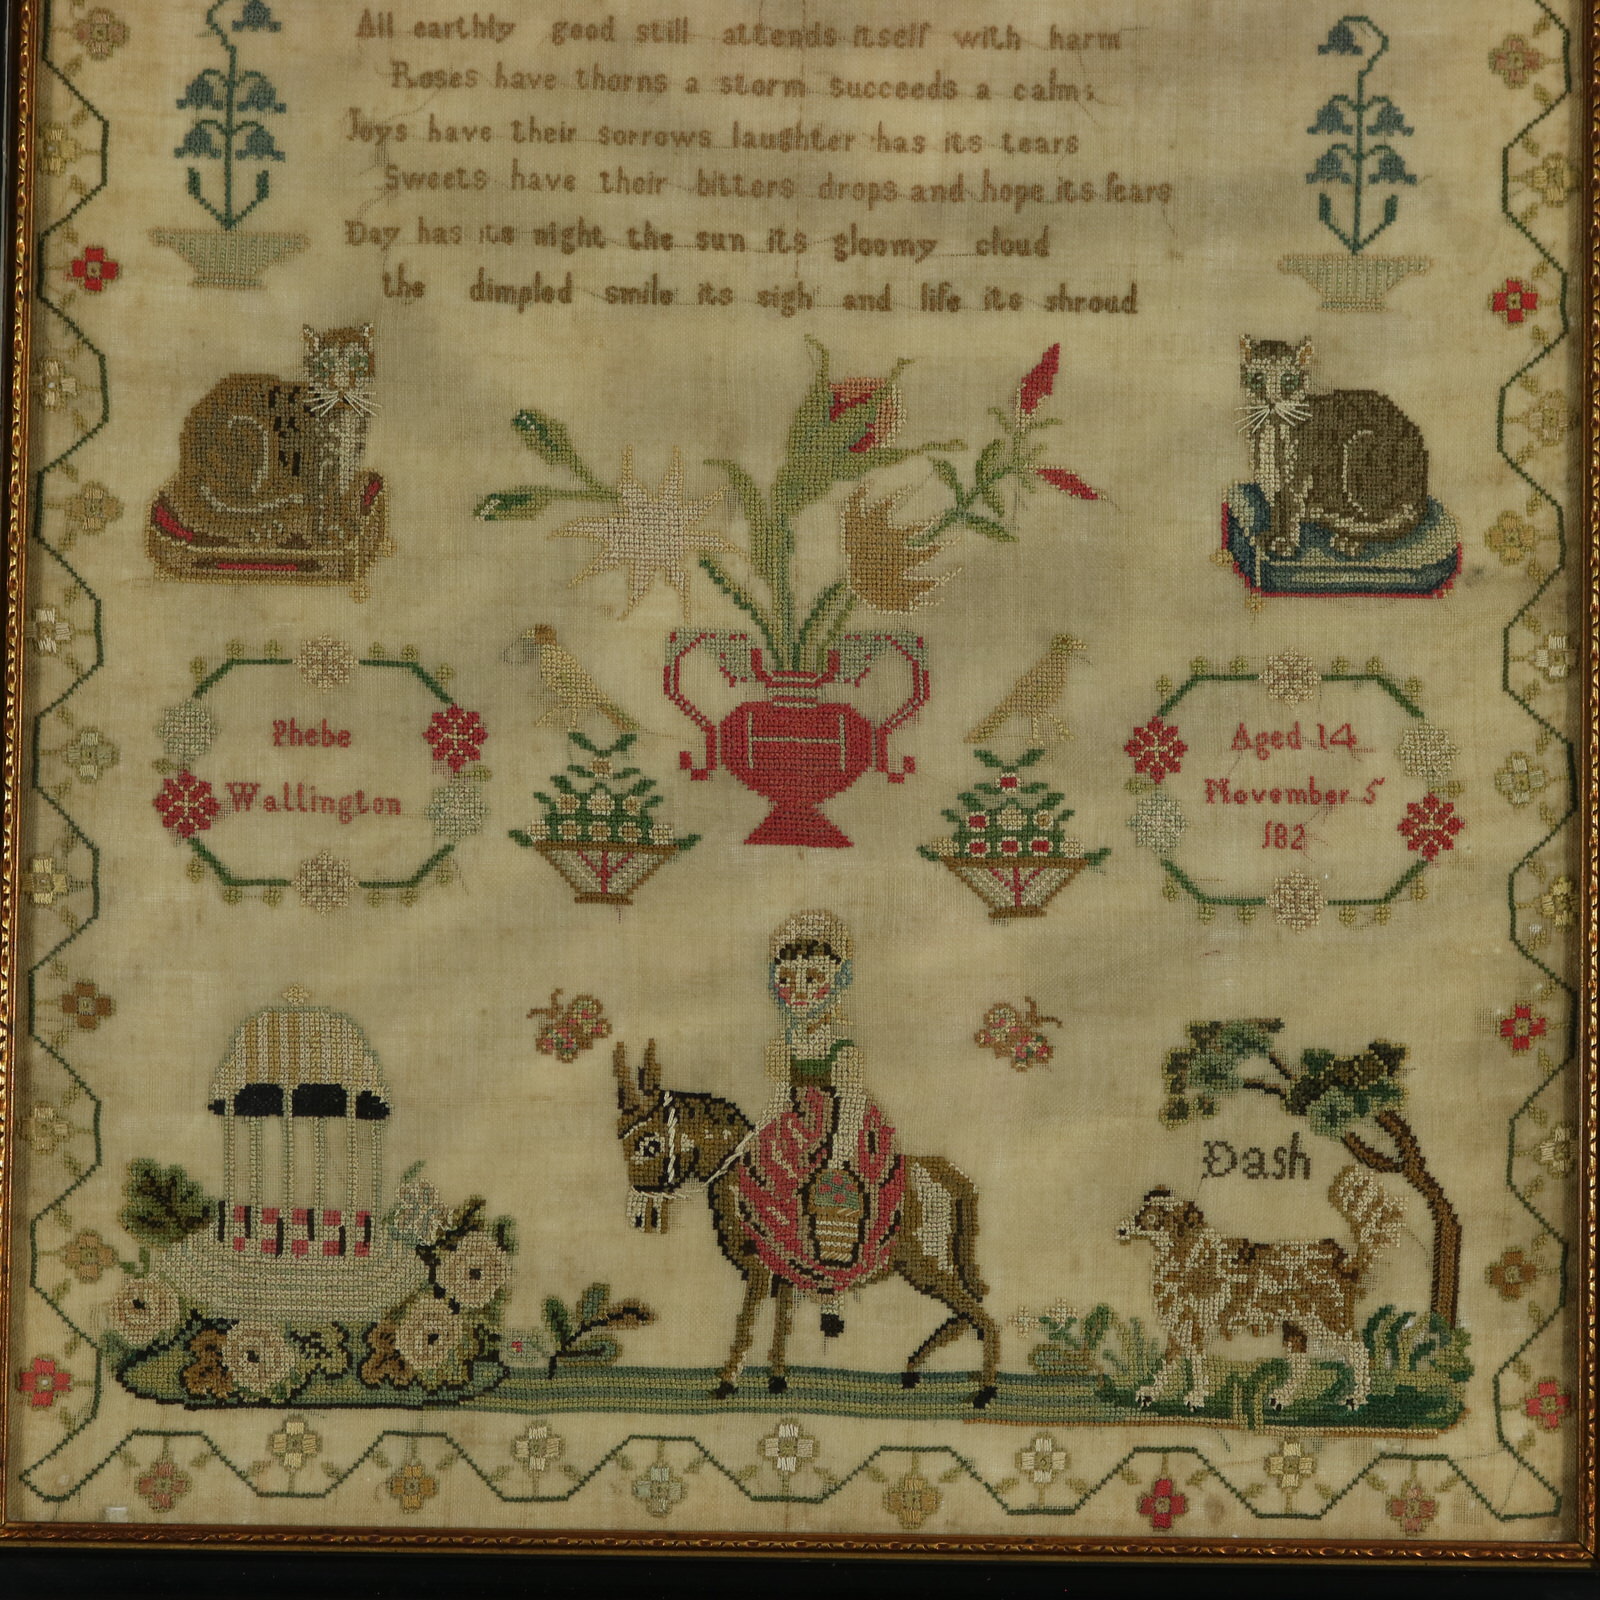 All earthly good still attends itself with harm
Roses have thorns a storm succeeds a calm;
Joys have their sorrows laughter has its tears
Sweets have their bitters drops and hope its fears
Day has its night the sun its gloomy cloud
the dimpled smile its sigh and life its shroud
Phebe
Wallington
Aged 14
November 5
182
Dash